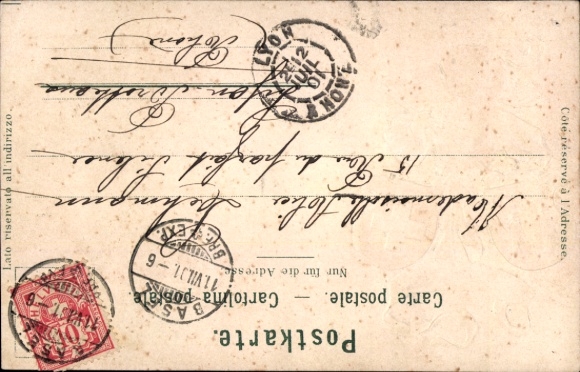 Postkarte.
Carte postale. — Cartolina postale.
Nur für die Adresse.
Côté réservé à l'Adresse.
Lato riservato all'indirizzo.
BASEL
11.VII.01.-6
BRF. EXP.
BASEL
11.VII.01.-6
10
Mademoiselle Lehmann
15 Rue du parfait Silence
Lyon Brotteaux
Rhône
LYON
12 JUIL 01
RHONE